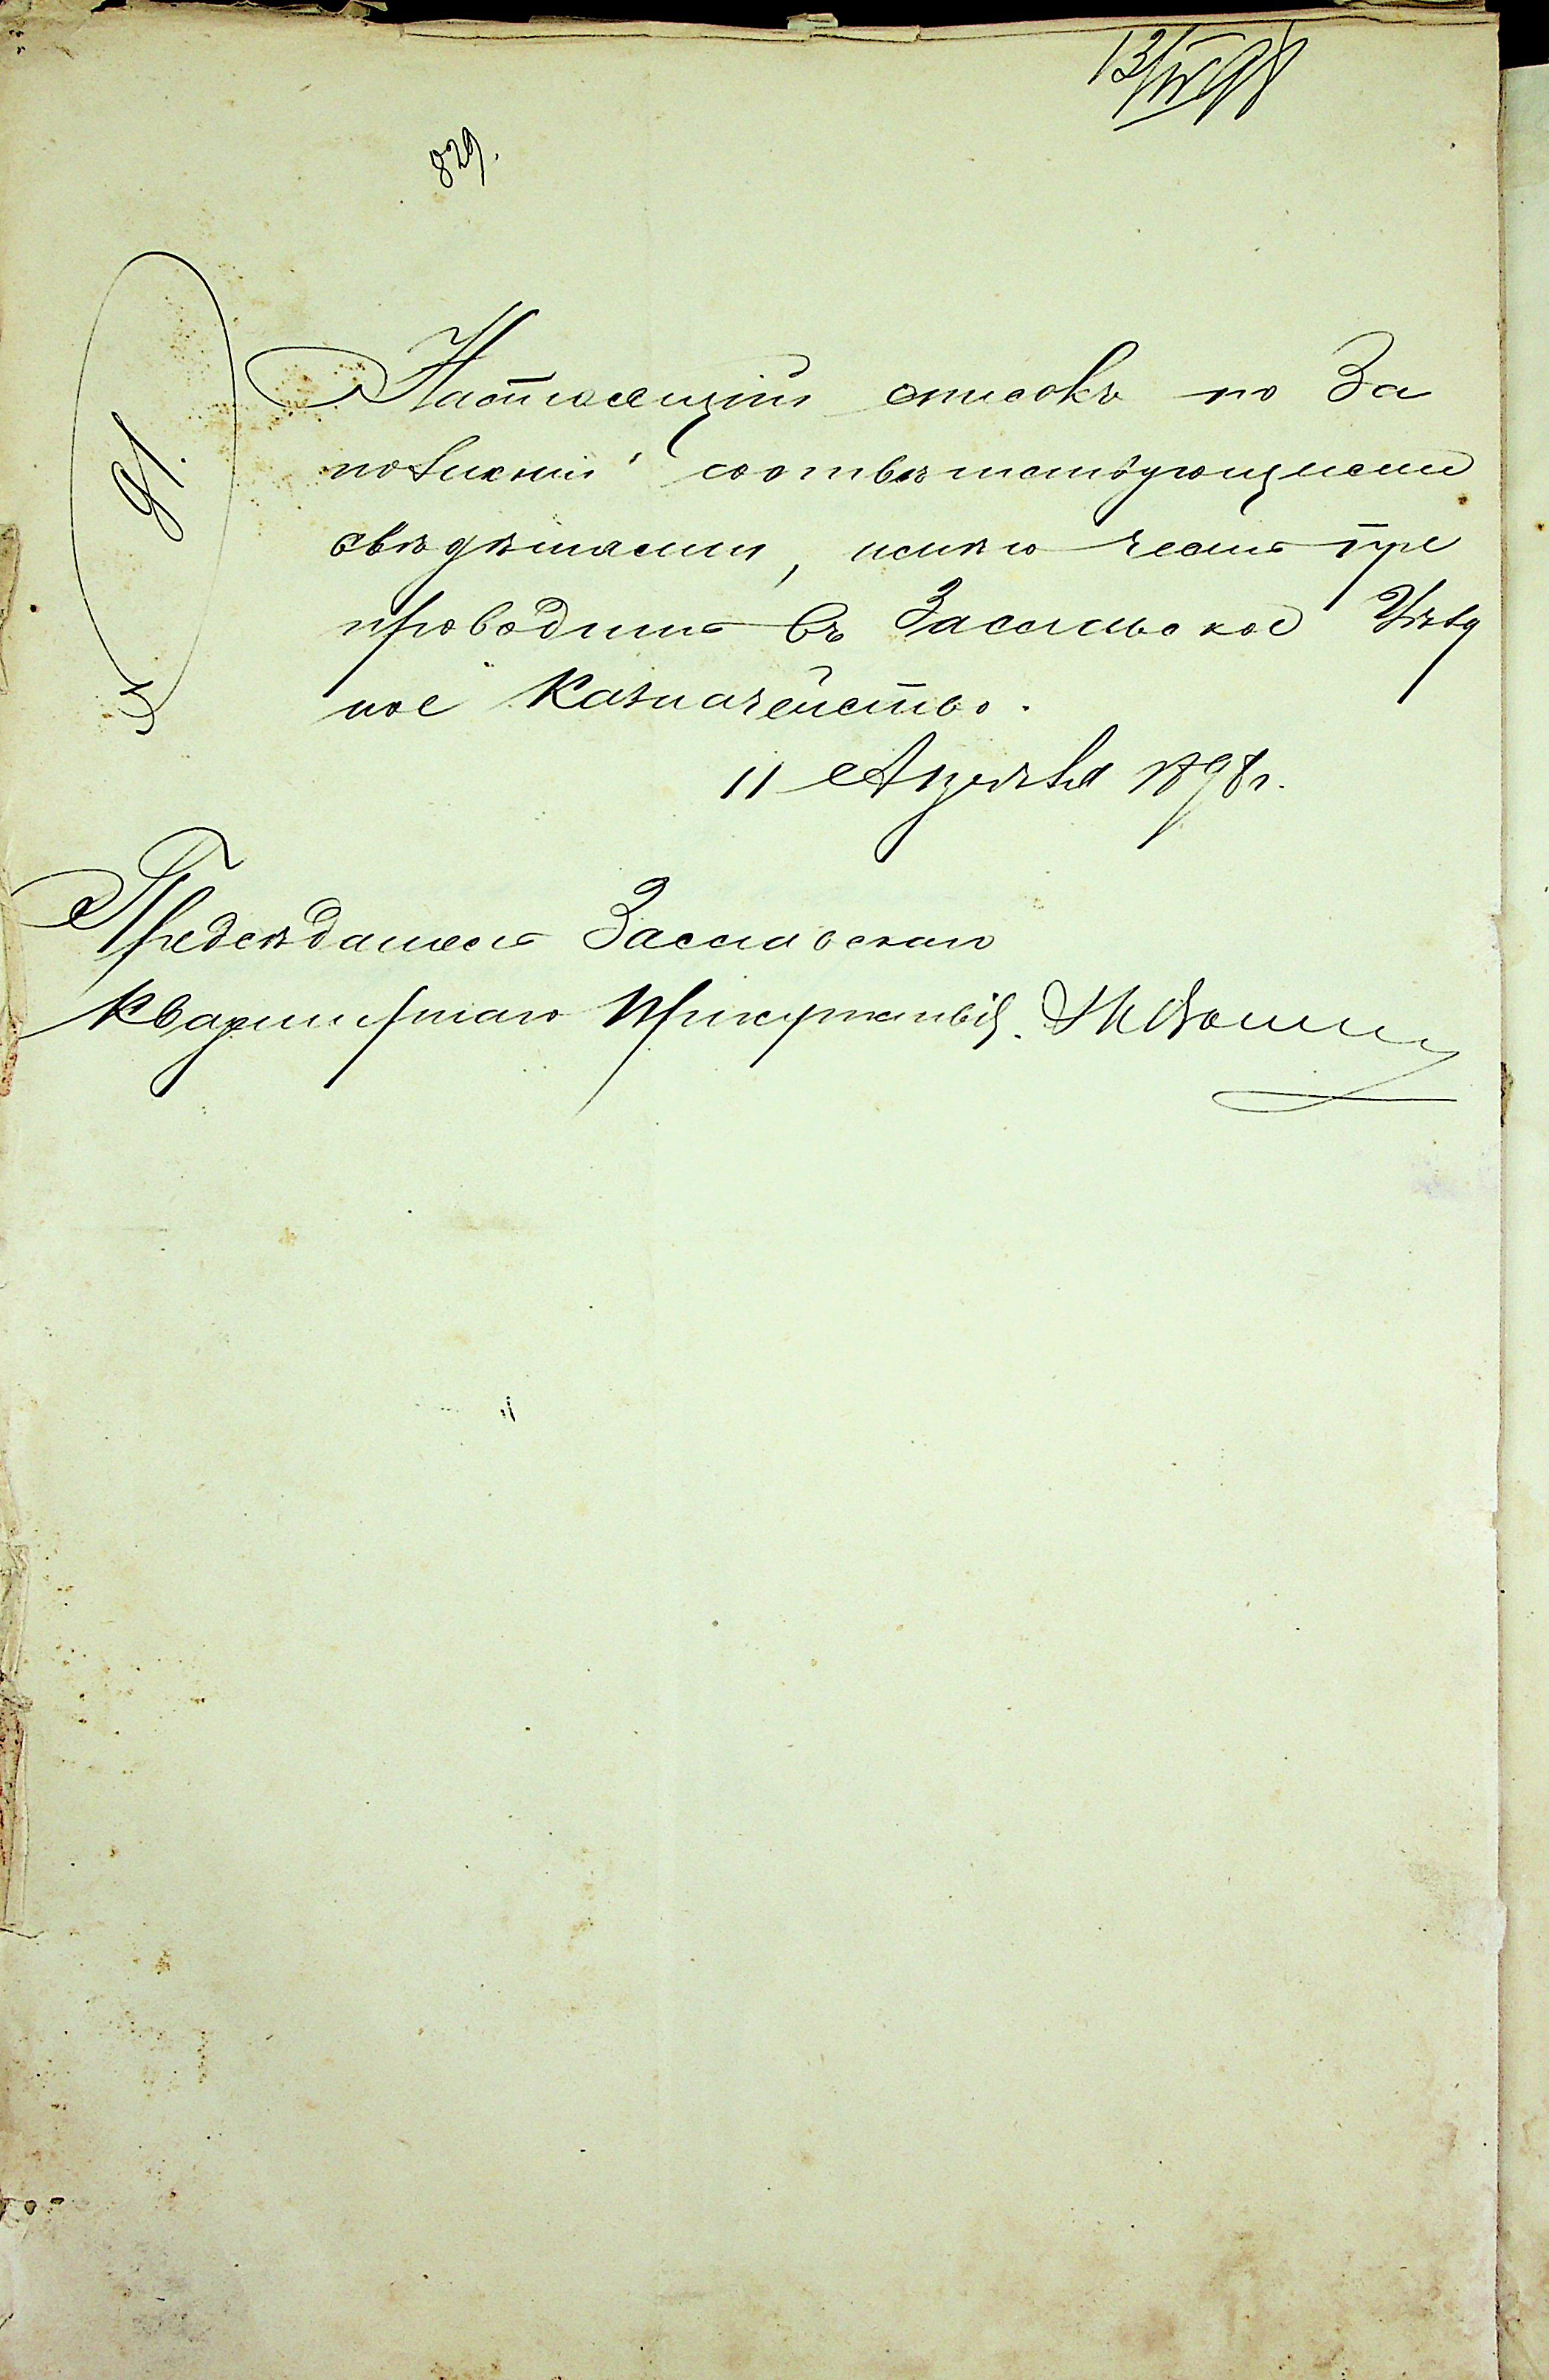 13/IV 98
829.
91.
Настоящій списокъ по За
полненіи соотвѣтствующими
свѣдѣніями, имѣю честь пре
проводить въ Заславльское Уѣзд
ное Казначейство.
11 Апрѣля 1898 г.
Предсѣдатель Заславскаго
Квартирнаго Присутствія.